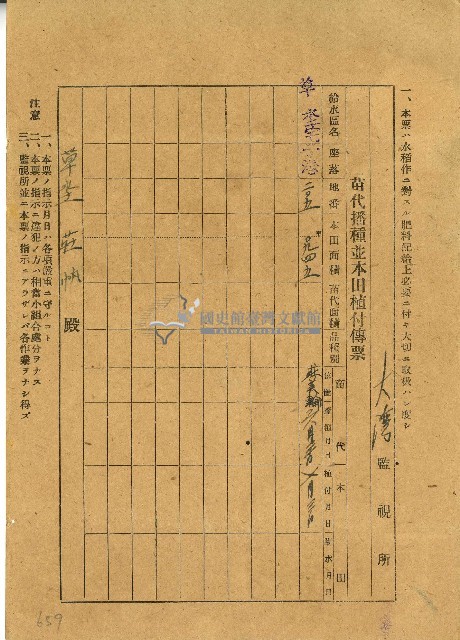 一、本票ハ水稻作ニ對スル肥料配給上必要ニ付キ大切ニ取扱ハレ度シ
大湾監視所
苗代播種並本田植付傳票
給水區名 座落 地番 本田面積 苗代面積 品種別 苗代 本田
播種月日 植付月日
草
二〇五
草坐 莊帆 殿
注意
一、本票ノ指示月日ハ各項嚴重ニ守ルコト
二、本票ノ指示ニ違犯ノ方ハ相當小組合處分ヲナス
三、監視所並ニ本票ノ指示ニアラザレバ各作業ヲナシ得ズ
國史館臺灣文獻館
TAIWAN HISTORICA
659